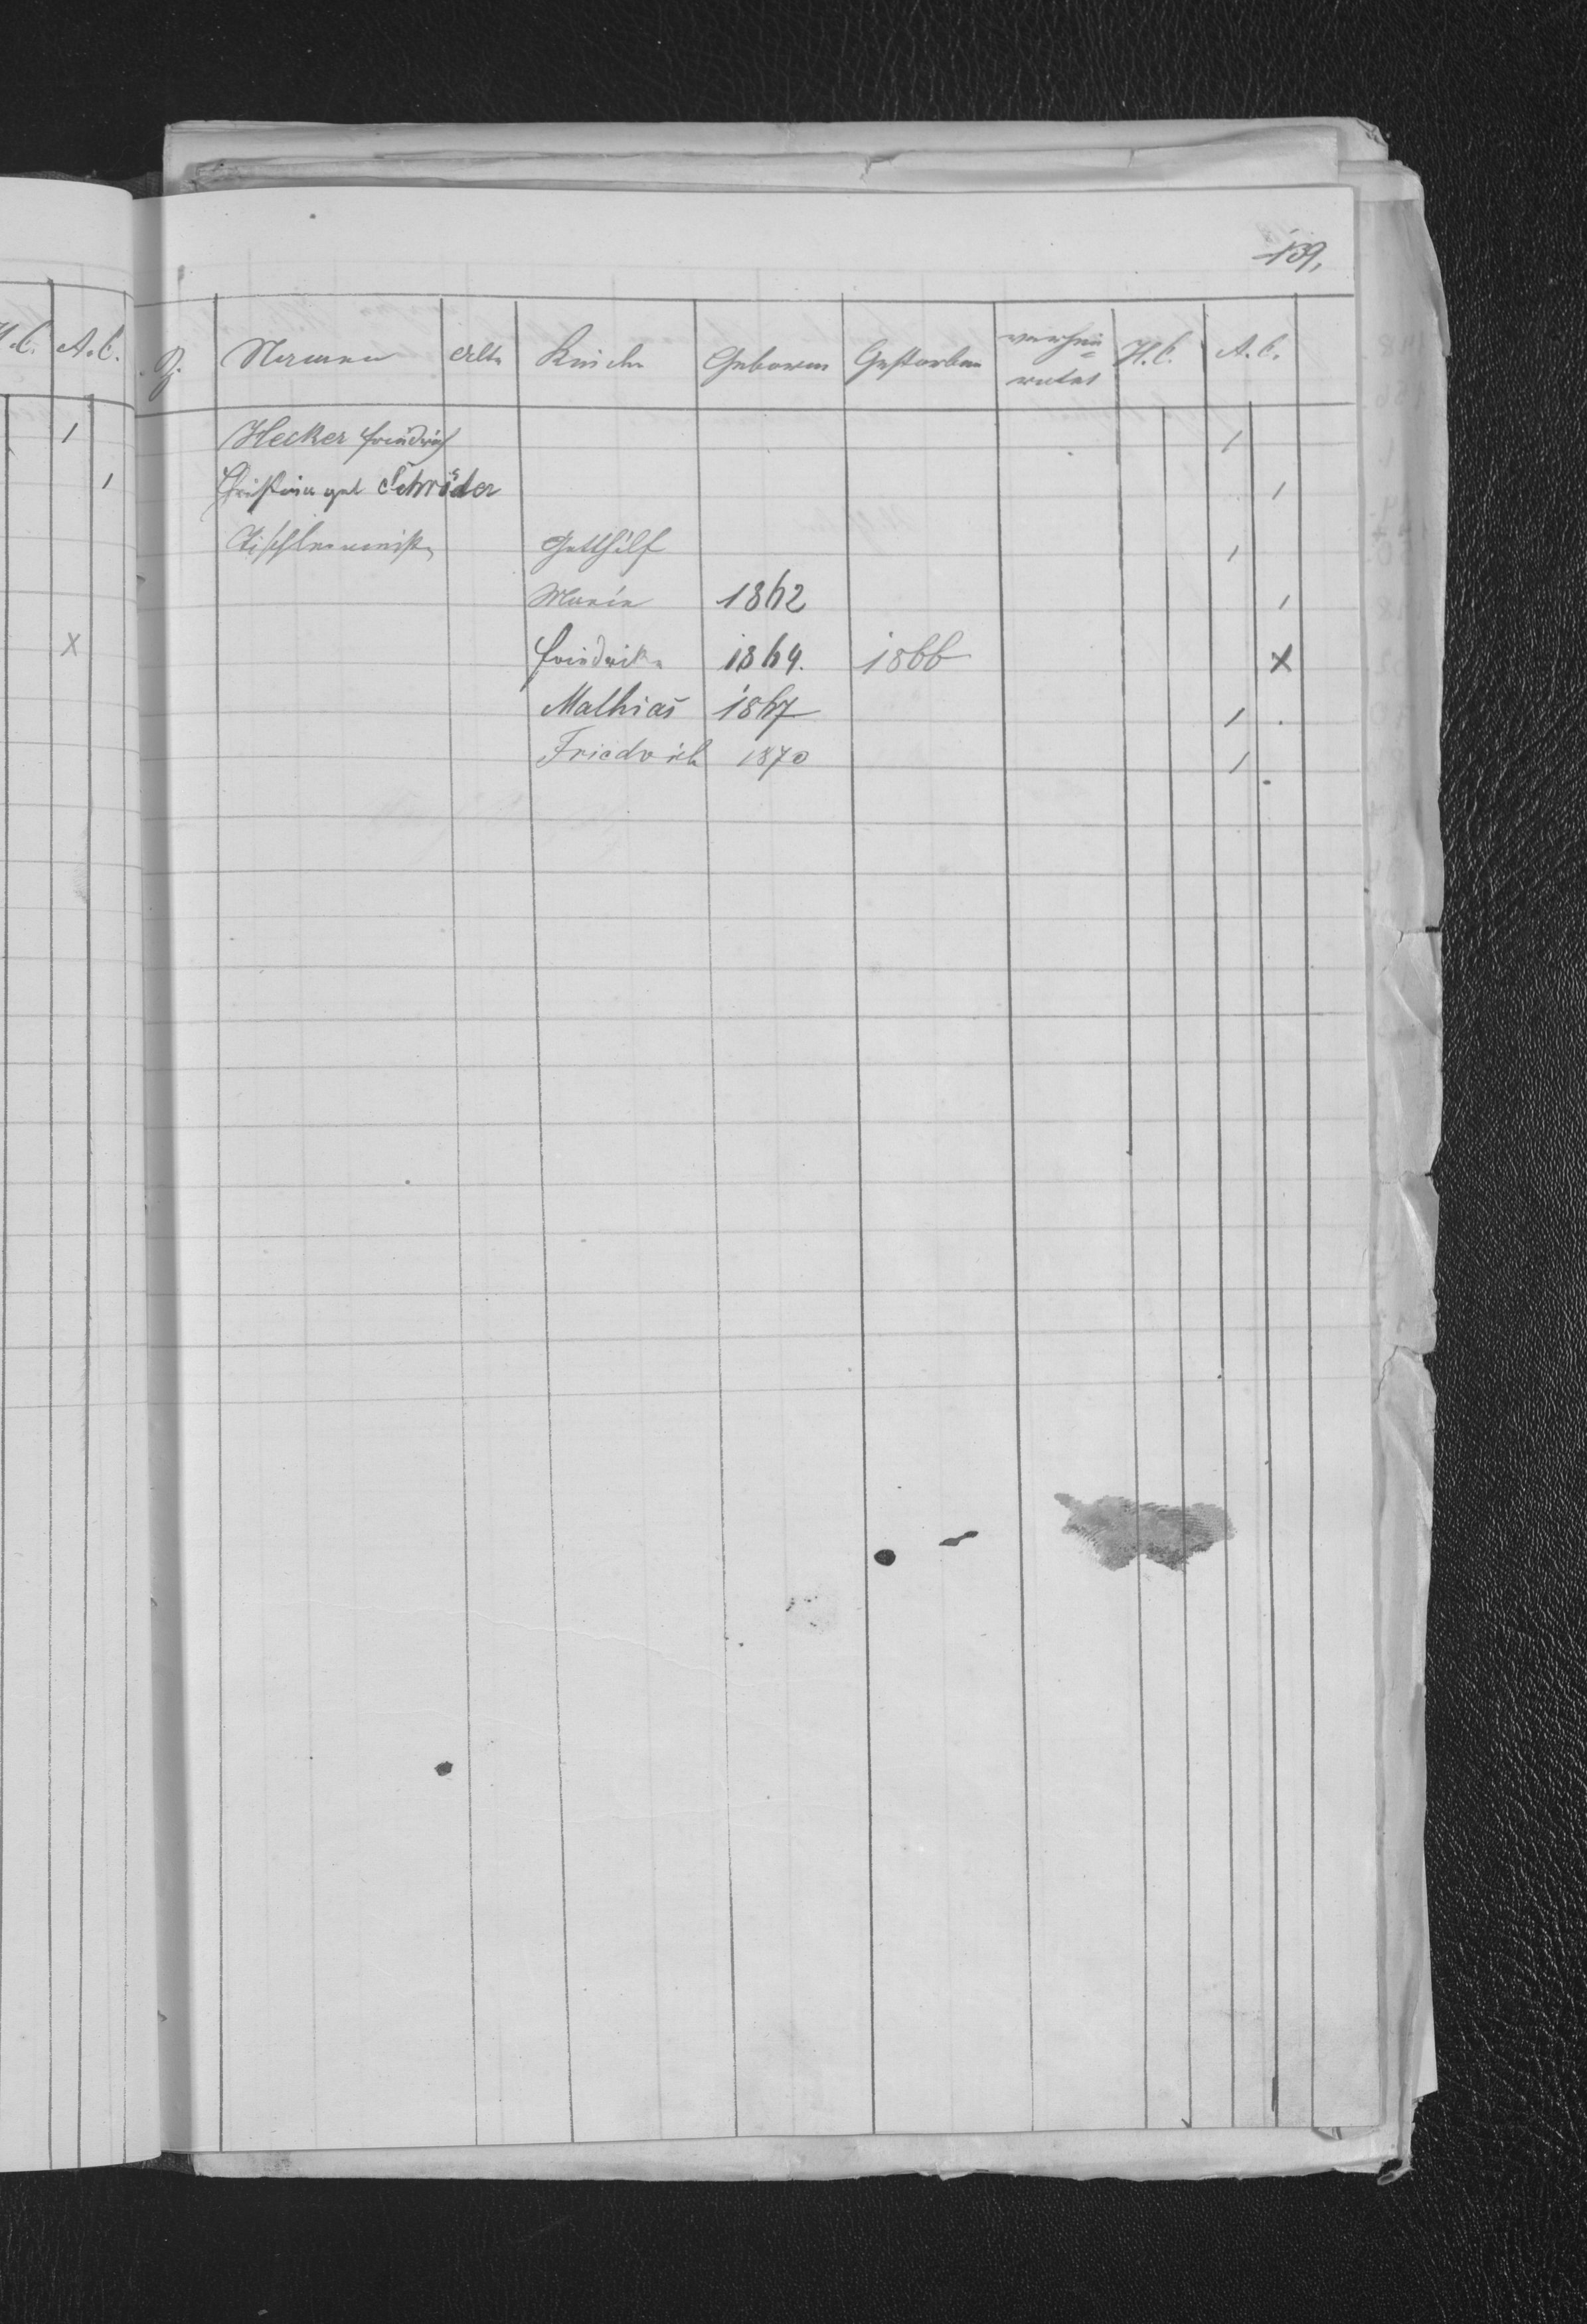 139.
H.C. A.C.
Z. Namen Alte Kinder Geboren Gestorben verhei=
ratet H.C. A.C.
1 Hecker Friedrich 1
1 Christina geb Schröder 1
Tischlermeister Gotthilf 1
Maria 1862 1
X Friedrika 1864. 1866 X
Mathias 1867 1
Friedrich 1870 1